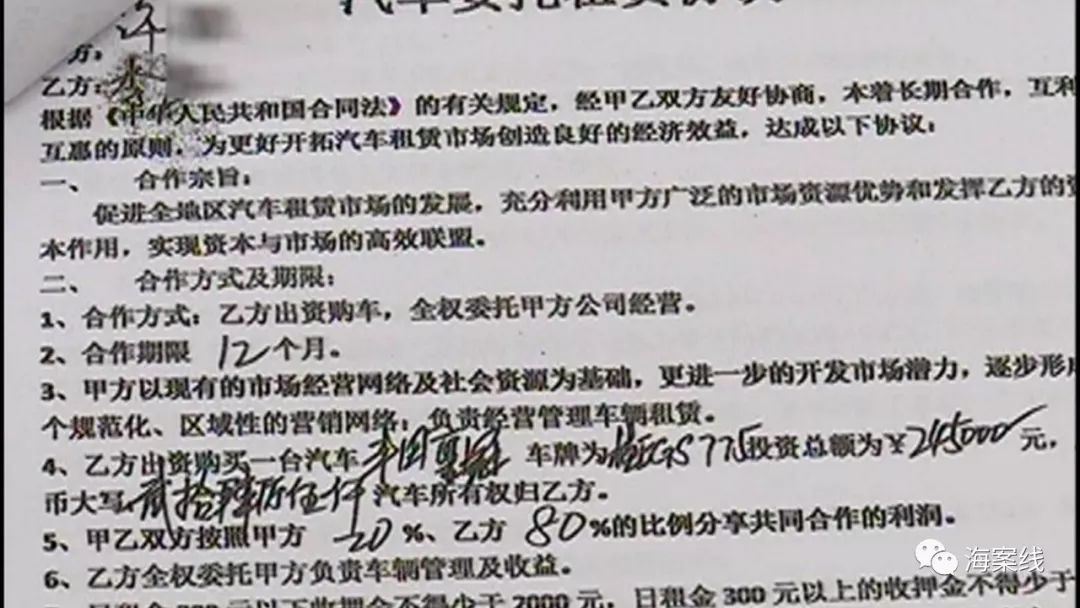 汽车委托租赁协议
方：许
乙方：李
根据《中华人民共和国合同法》的有关规定，经甲乙双方友好协商，本着长期合作，互利
互惠的原则，为更好开拓汽车租赁市场创造良好的经济效益，达成以下协议：
一、 合作宗旨：
促进全地区汽车租赁市场的发展，充分利用甲方广泛的市场资源优势和发挥乙方的资
本作用，实现资本与市场的高效联盟。
二、 合作方式及期限：
1、合作方式：乙方出资购车，全权委托甲方公司经营。
2、合作期限 12个月。
3、甲方以现有的市场经营网络及社会资源为基础，更进一步的开发市场潜力，逐步形成
个规范化、区域性的营销网络；负责经营管理车辆租赁。
4、乙方出资购买一台汽车丰田 车牌为 GS775投资总额为￥245000元，
币大写 贰拾肆万伍仟 汽车所有权归乙方。
5、甲乙双方按照甲方 20%、乙方 80%的比例分享共同合作的利润。
6、乙方全权委托甲方负责车辆管理及收益。
日租金 300 元以下收押金不得少于 2000 元，日租金 300 元以上的收押金不得少于
海案线